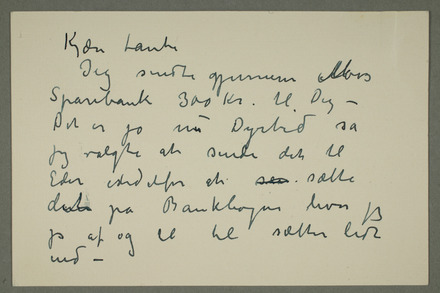 Kjære tante
Jeg sendte gjennem Mos
Sparebank 300 Kr. til Dig –
Det er jo nu Dyrtid så
jeg valgte at sende det til
Eder istedetfor at sen sætte
dete på Bankbogen hvor jeg
jo af og til til sætter lidt
ind –